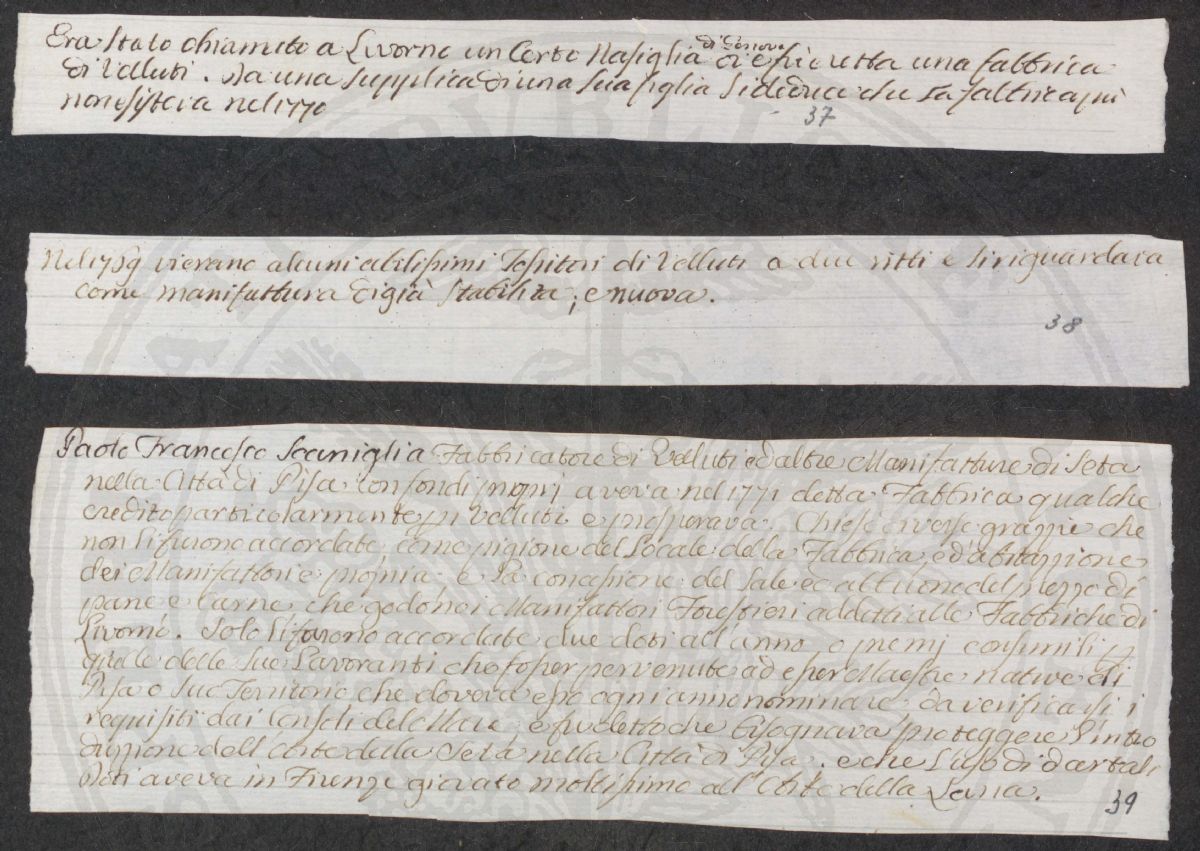 Era stato chiamato a Livorno un Certo Nasiglia di Genova ed essi eretta una fabbrica
di Velluti. Da una supplica di una sua figlia si deduce che la fabbrica più
non esisteva nel 1770
37
Nel 1789 vi erano alcuni abilissimi Tessitori di Velluti a due ritti e si riguardava
come manifattura di già stabilita, e nuova.
38
Paolo Francesco Scaniglia Fabbricatore di Velluti ed altre Manifatture di Seta
nella Città di Pisa con fondi propri aveva nel 1771 detta Fabbrica qualche
credito particolarmente pi Velluti e prosperava. Chiese diverse grazzie che
non li furono accordate, come pigione del Locale della Fabbrica, ed abitazzione
dei Manifattori e propria e la concessione del Sale ed abbuono del prezzo di
pane e Carne, che godono i Manifattori Forestieri addetti alle Fabbriche di
Livorno. Solo li furono accordate due doti all'anno o premj consimili p
quelle delle sue Lavoranti che fosser pervenute ad esser Maestre native di
Pisa o suo Territorio che doveva esso ogni anno nominare da verificarsi i
requisiti dai Consoli del Mare, e fu detto che bisognava proteggere l'intro
duzzione dell'Arte della Seta nella Città di Pisa. e che l'uso di dar tali
Doti aveva in Firenze giovato moltissimo all'Arte della Lana.
39